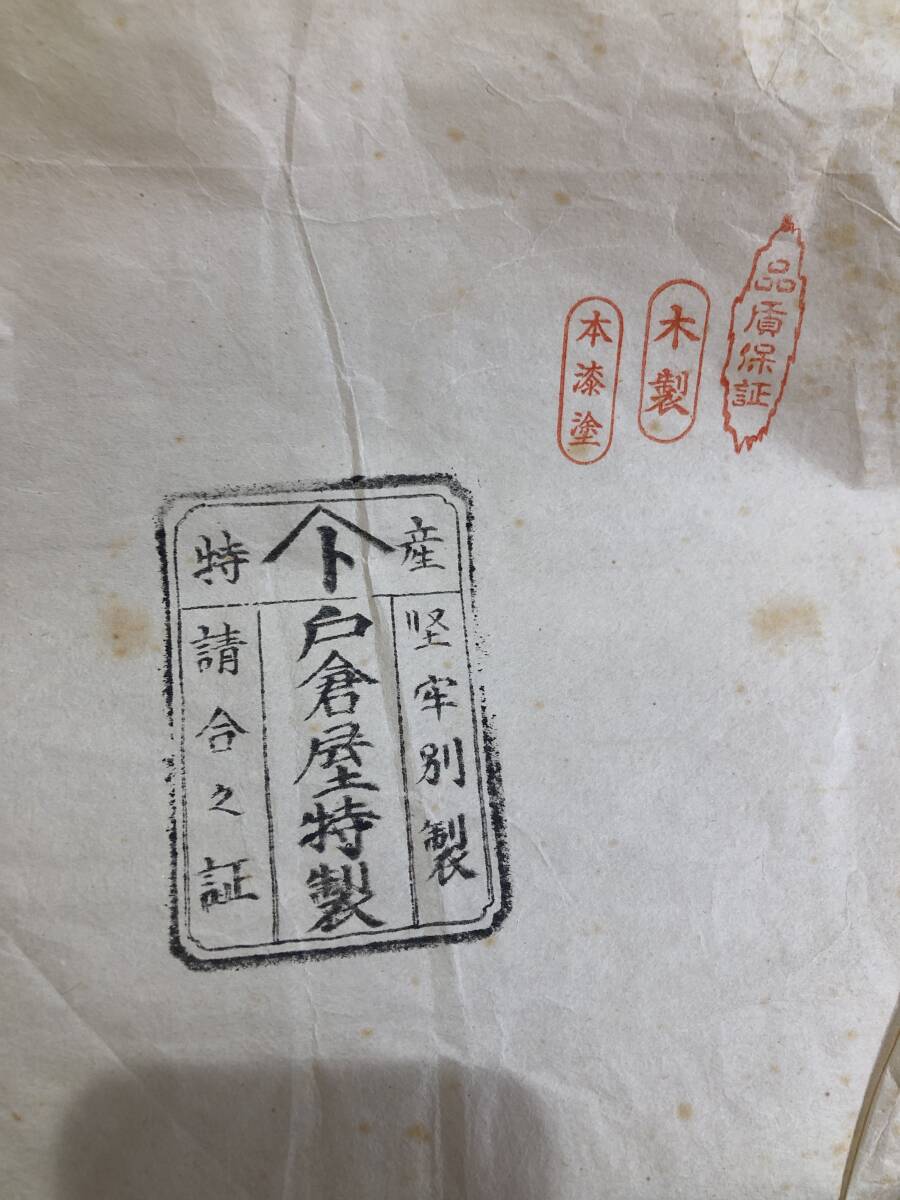 品質保証
木製
本漆塗
特 ト 産
堅牢別製
戸倉屋特製
請合之証